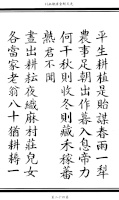 平生耕植是貽謀春雨一犂
農事足朝出作暮入息帝力
何干秋則收冬則藏禾稼蕃
熟君不聞
晝出耕耘夜織麻村莊兒女
各當家老翁八十猶耕耨一